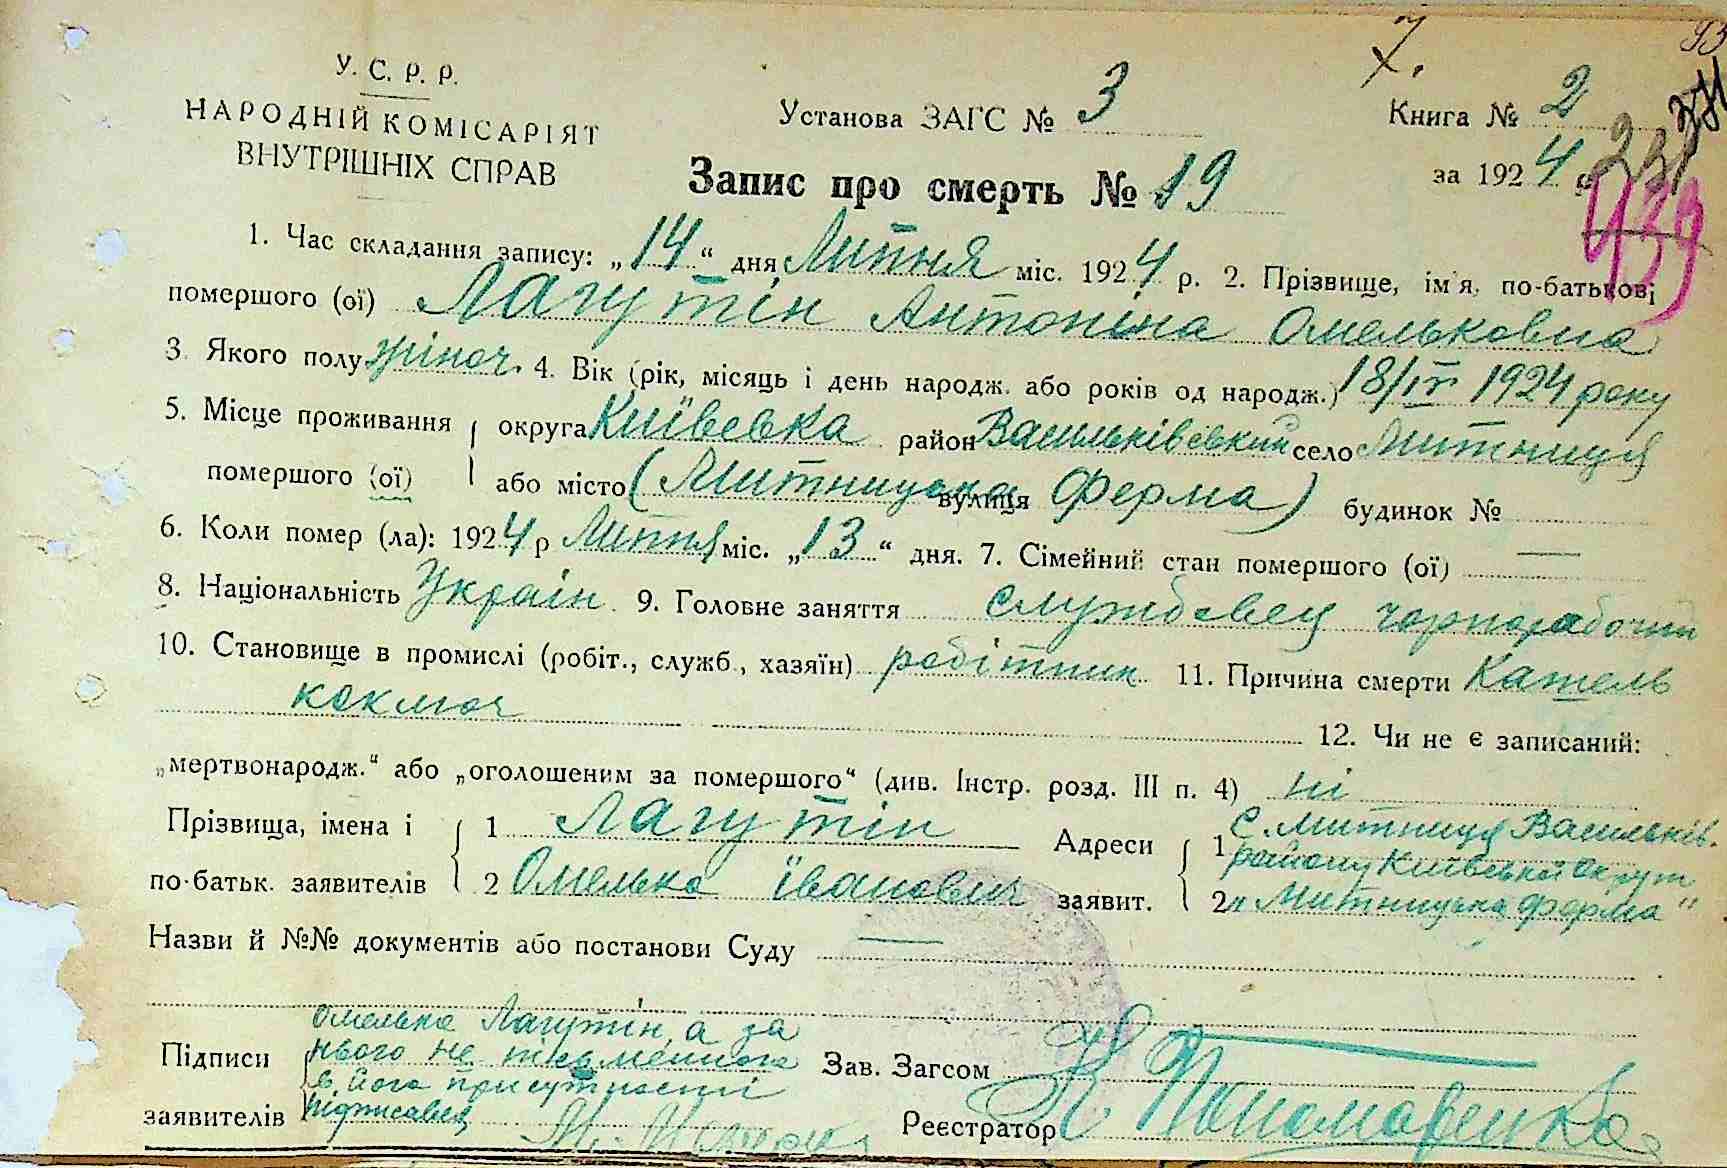 7.
93
У. С. Р. Р.
НАРОДНІЙ КОМІСАРІЯТ
ВНУТРІШНІХ СПРАВ
Установа ЗАГС № 3
Книга № 2
за 1924 р.
231
439
Запис про смерть № 19
1. Час складання запису: „14“ дня Липня міс. 1924 р. 2. Прізвище, ім'я, по-батькові
помершого (ої) Лагутін Антоніна Омельковна
3. Якого полу жіноч. 4. Вік (рік, місяць і день народж. або років од народж.) 18/IV 1924 року
5. Місце проживання округа Київсвка район Васильківський село Митниця
помершого (ої) або місто (Митницька вулиця Ферма) будинок №
6. Коли помер (ла): 1924 р Липня міс. „13“ дня. 7. Сімейний стан помершого (ої) —
8. Національність Украін. 9. Головне заняття службовец чорнорабочий
10. Становище в промислі (робіт., служб., хазяїн) робітник 11. Причина смерти Кашель
коключ
12. Чи не є записаний:
„мертвонародж.“ або „оголошеним за помершого“ (див. Інстр. розд. III п. 4) ні
Прізвища, імена і по-батьк. заявителів
1 Лагутін
2 Омелько Іванович
Адреси заявит.
1 С. Митниця Васильків.
району Київської Округи
2 „Митницька ферма“
Назви й №№ документів або постанови Суду —
Підписи заявителів
Омелько Лагутін, а за
нього не письменного
в його присутності
підписався
Зав. Загсом
Реєстратор Пономаренко